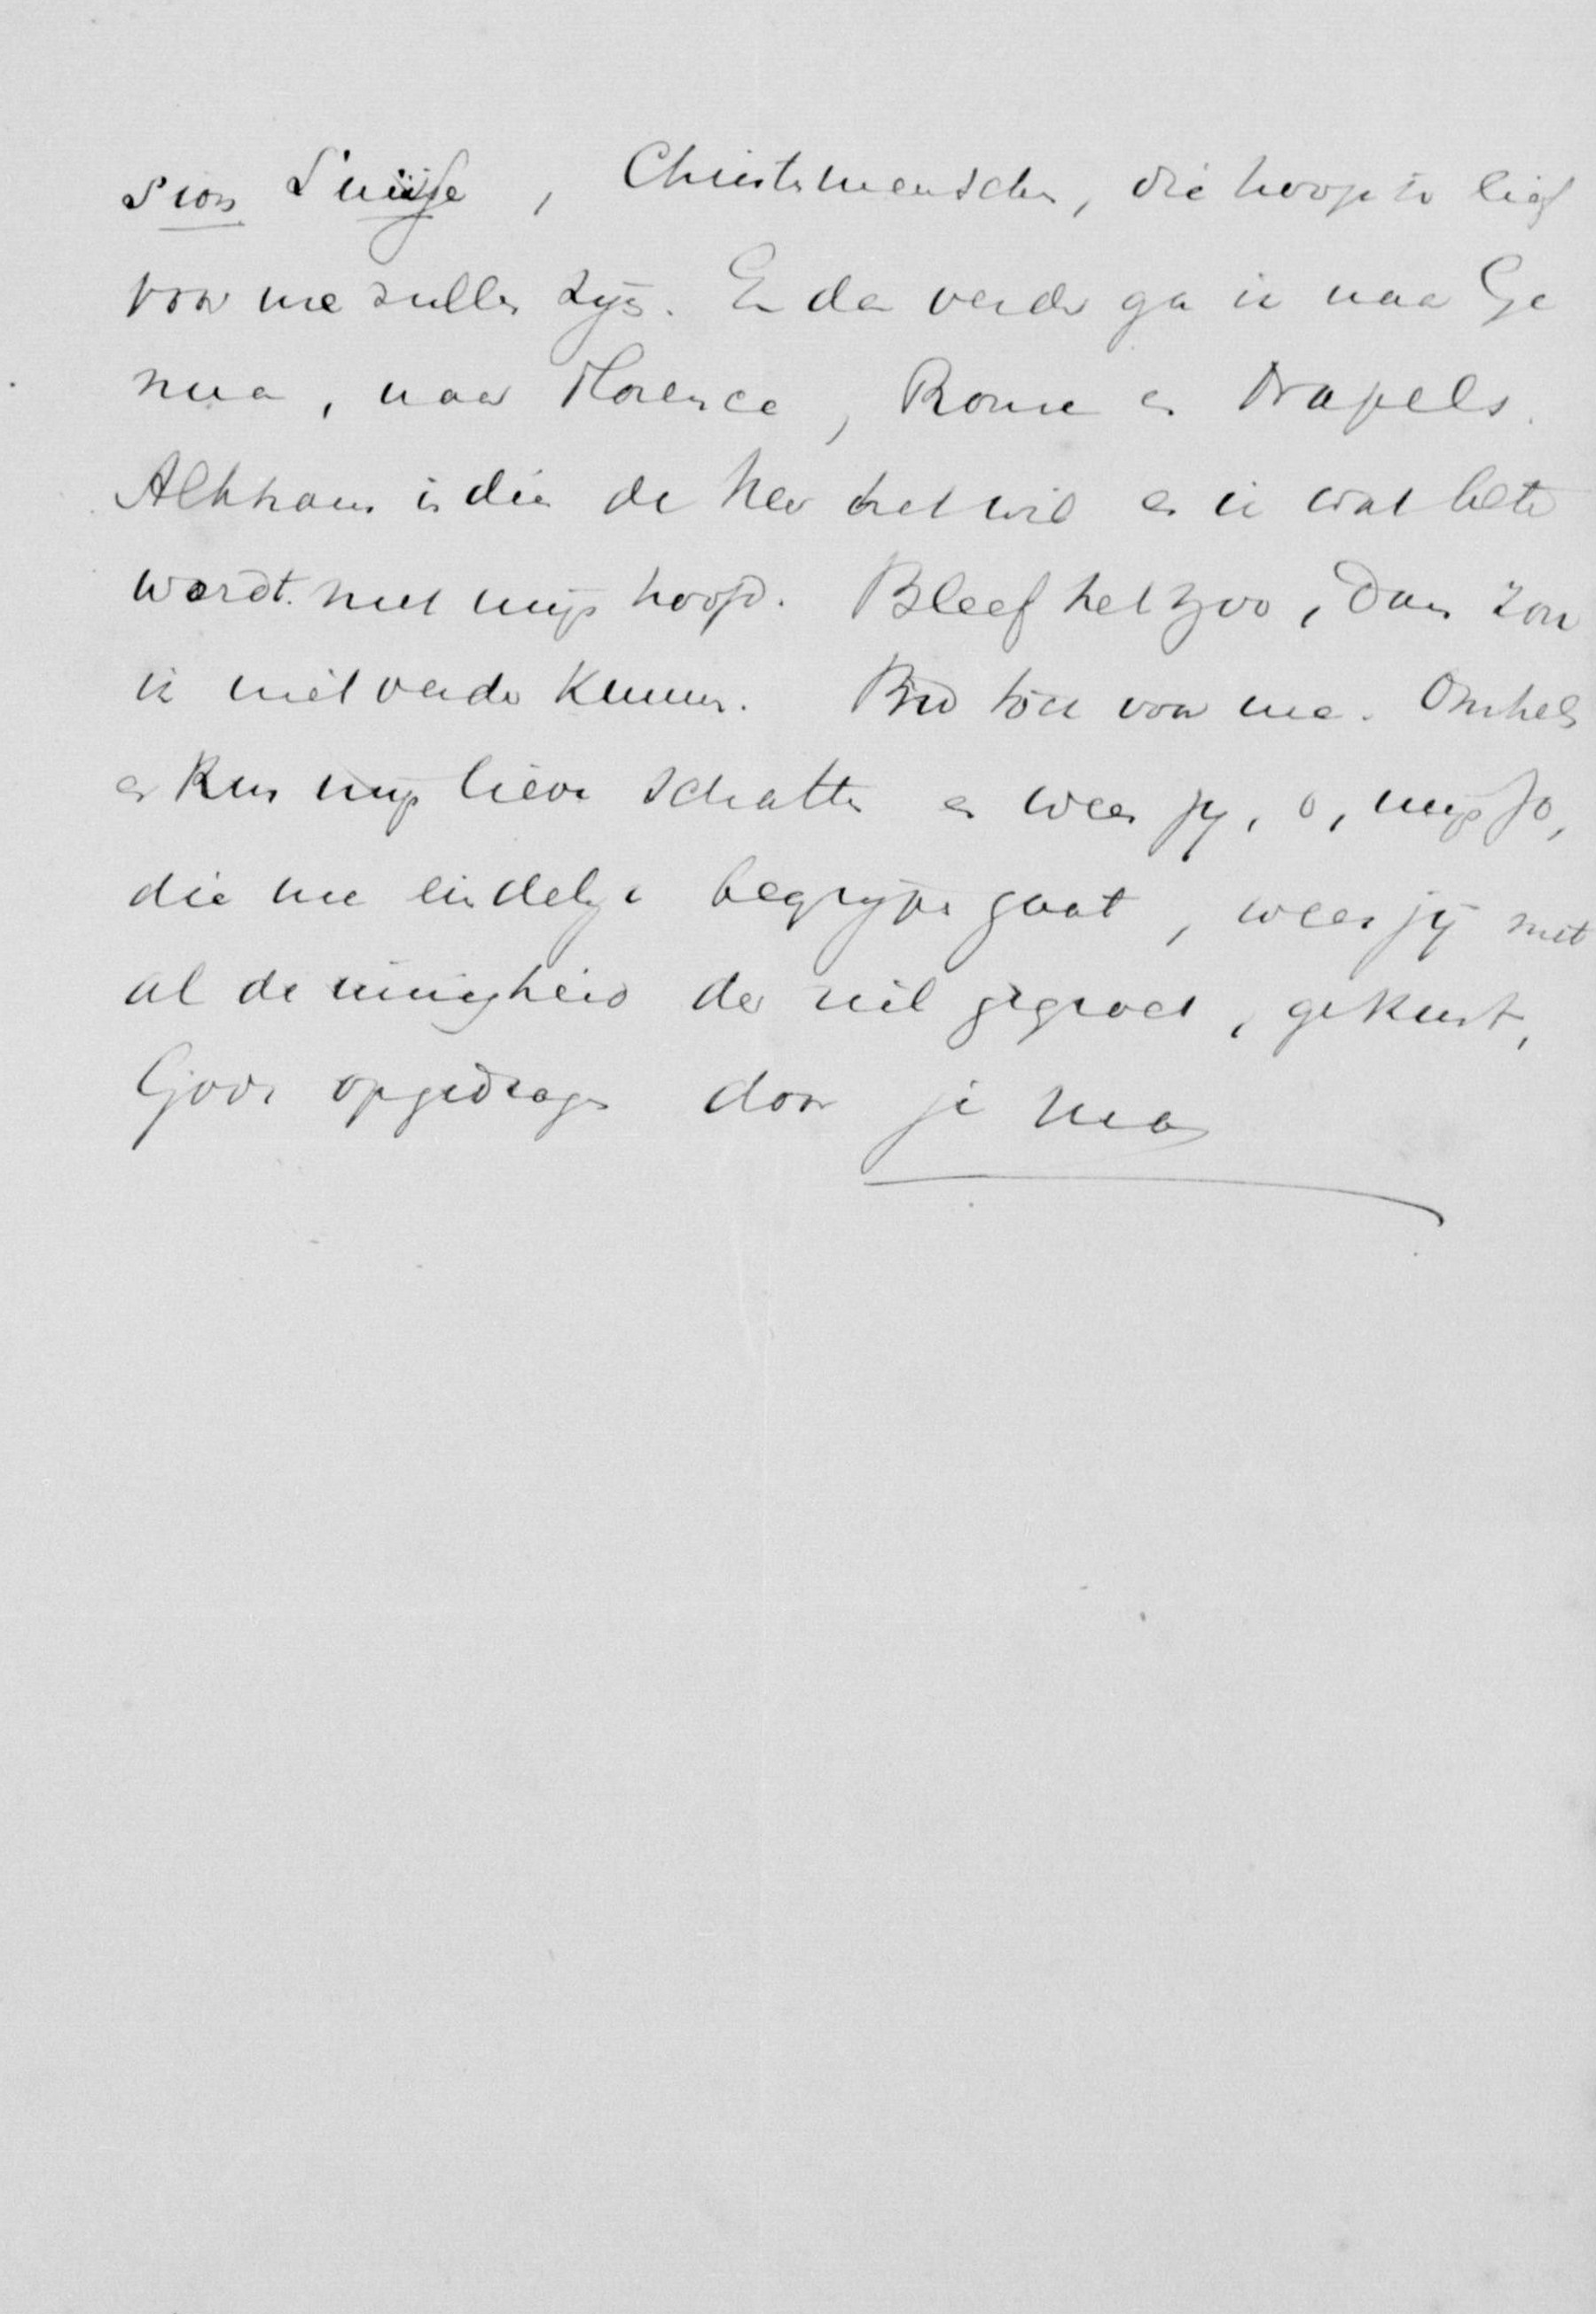 sion Suisse, Christenmenschen, die hoop ik lief
voor me zullen zijn. En dan verder ga ik naar Ge
nua, naar Florence, Rome en Napels.
Althans indien de Heer het wil en ik wat beter
wordt met mijn hoofd. Bleef het zoo, dan zou
ik niet verder kunnen. Bid toch voor me. Omhels
en kus mijn lieve schatten en wees jij, o, mijn Jo,
die me eindelijk begrijpen gaat, wees jij met
al de innigheid der ziel gegroet, gekust,
Gode opgedragen door je man